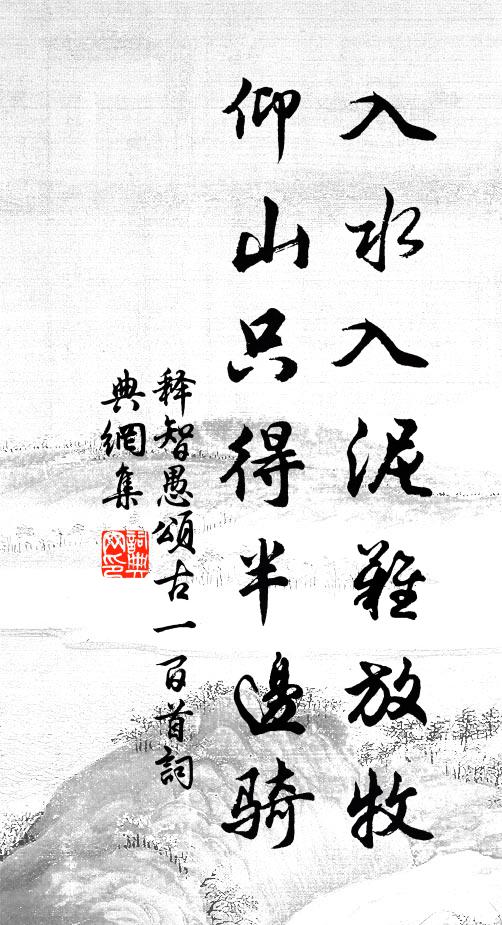 入水入泥難放牧
仰山只得半邊騎
释智愚頌古一百首詞
典網集
詞典網印